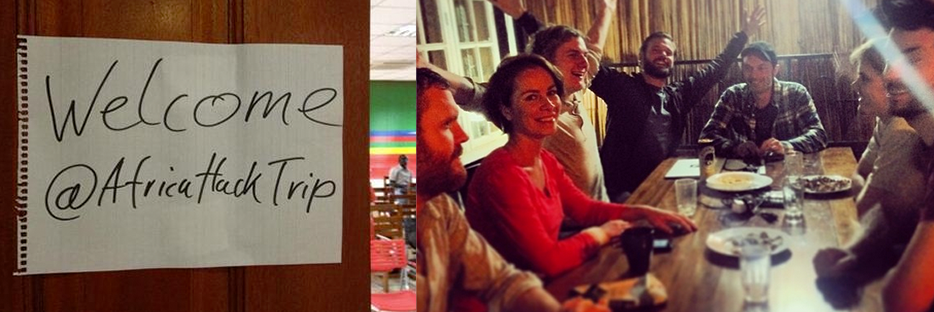 Welcome
@AfricaHackTrip